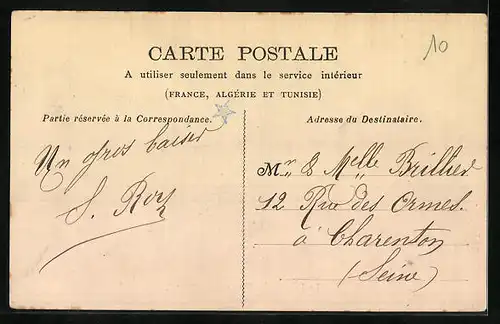 10
CARTE POSTALE
A utiliser seulement dans le service intérieur
(FRANCE, ALGÉRIE ET TUNISIE)
Partie réservée à la Correspondance.
Un gros baiser
S. Roy
Adresse du Destinataire.
Mr & Melle Brillié
12 Rue des Ormes.
à Charenton
(Seine)